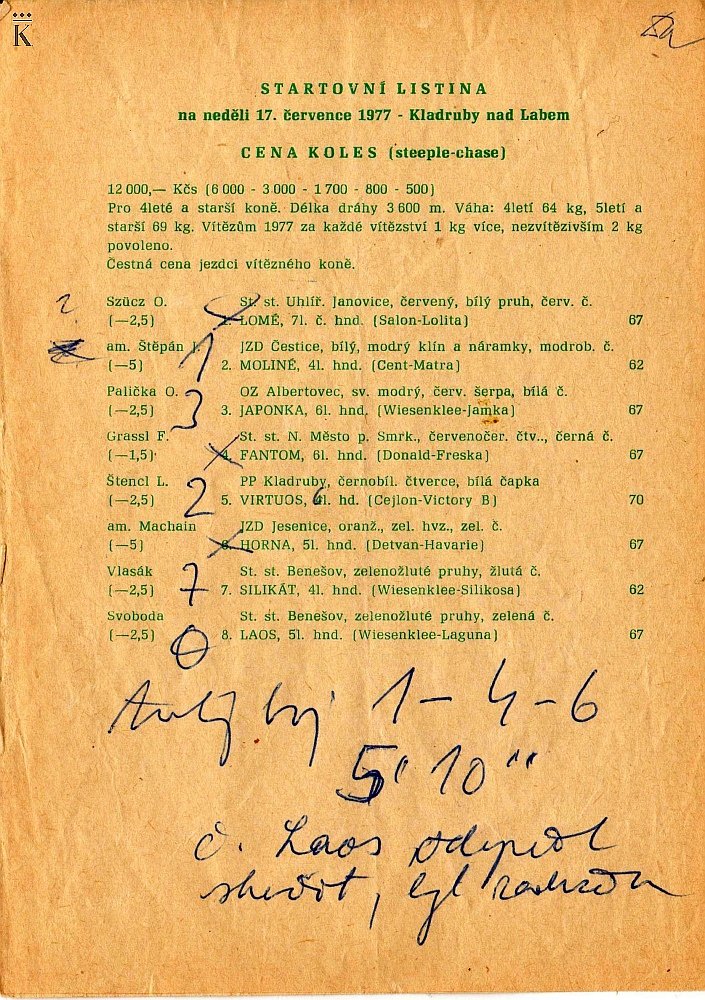 K
STARTOVNÍ LISTINA
na neděli 17. července 1977 - Kladruby nad Labem
CENA KOLES (steeple-chase)
12 000,— Kčs (6 000 - 3 000 - 1 700 - 800 - 500)
Pro 4leté a starší koně. Délka dráhy 3 600 m. Váha: 4letí 64 kg, 5letí a
starší 69 kg. Vítězům 1977 za každé vítězství 1 kg více, nezvítězivším 2 kg
povoleno.
Čestná cena jezdci vítězného koně.
? Szücz O. St. st. Uhlíř. Janovice, červený, bílý pruh, červ. č.
(—2,5) LOMÉ, 7l. č. hnd. (Salon-Lolita) 67
am. Štěpán J. 1 JZD Čestice, bílý, modrý klín a náramky, modrob. č.
(—5) 2. MOLINÉ, 4l. hnd. (Cent-Matra) 62
Palička O. 3 OZ Albertovec, sv. modrý, červ. šerpa, bílá č.
(—2,5) 3. JAPONKA, 6l. hnd. (Wiesenklee-Jamka) 67
Grassl F. St. st. N. Město p. Smrk., červenočer. čtv.., černá č.
(—1,5) 4. FANTOM, 6l. hnd. (Donald-Freska) 67
Štencl L. 2 PP Kladruby, černobíl. čtverce, bílá čapka
(—2,5) 5. VIRTUOS, 6l. hd. (Cejlon-Victory B) 70
am. Machain JZD Jesenice, oranž., zel. hvz., zel. č.
(—5) 6. HORNA, 5l. hnd. (Detvan-Havarie) 67
Vlasák 7 St. st. Benešov, zelenožluté pruhy, žlutá č.
(—2,5) 7. SILIKÁT, 4l. hnd. (Wiesenklee-Silikosa) 62
Svoboda 0 St. st. Benešov, zelenožluté pruhy, zelená č.
(—2,5) 8. LAOS, 5l. hnd. (Wiesenklee-Laguna) 67
1 - 4 - 6
5' 10"
Laos odepřel
skočit, byl